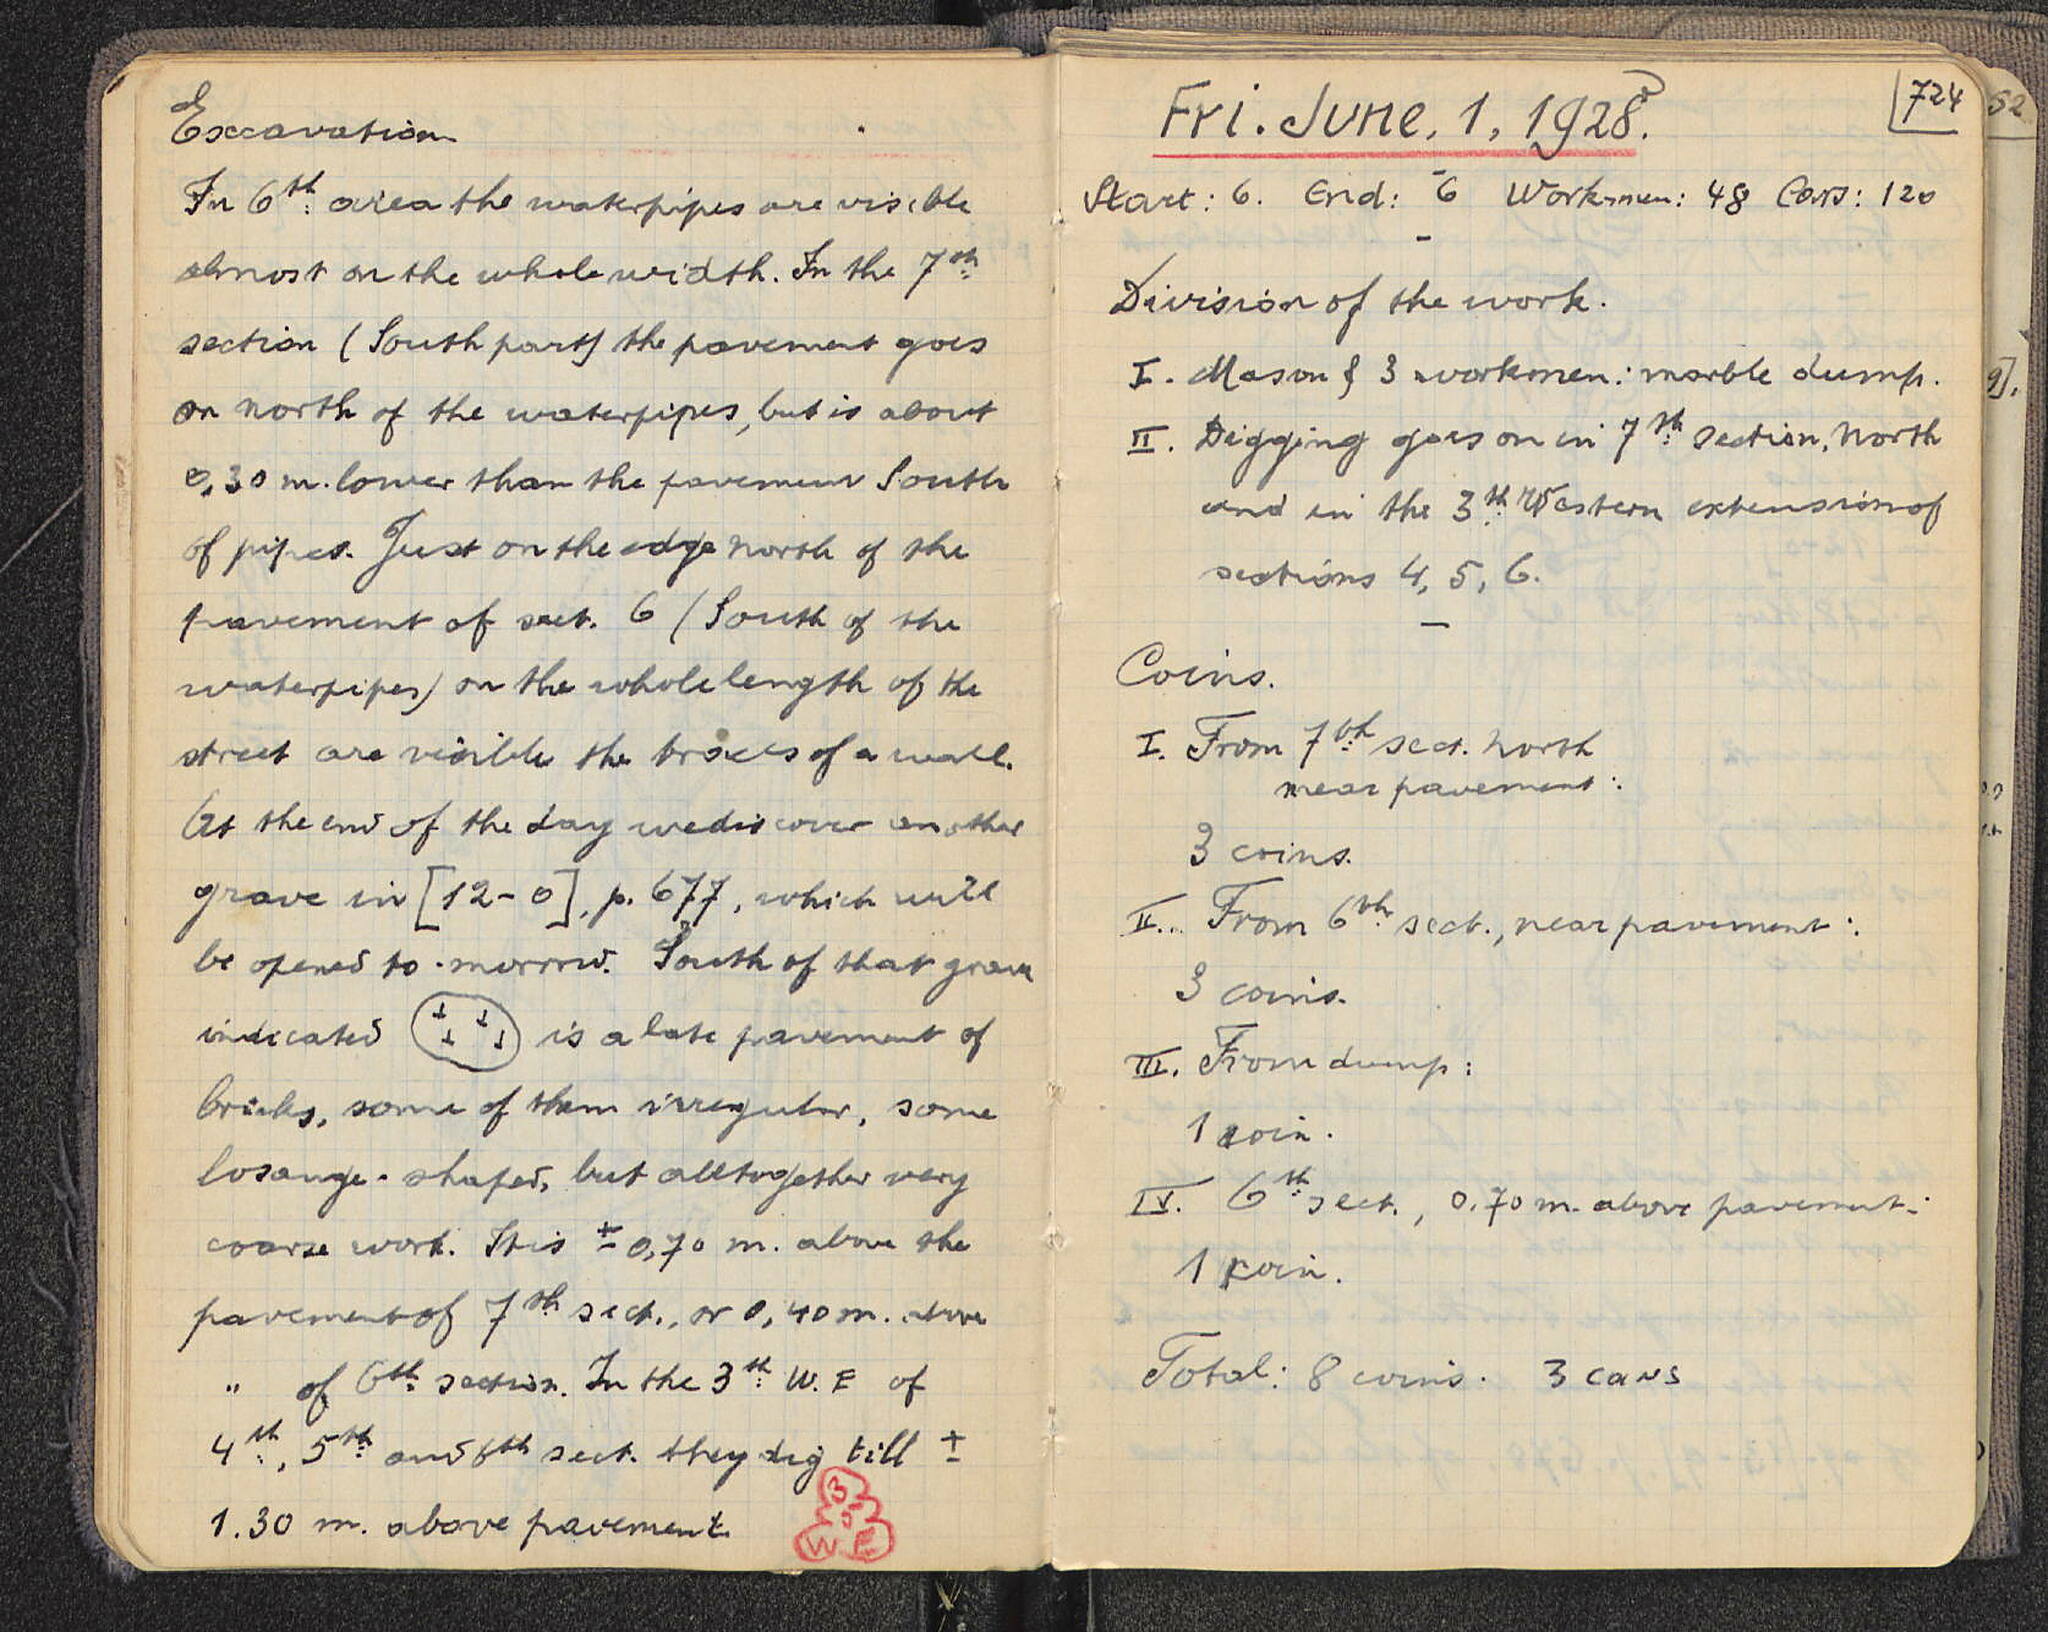 Excavation
In 6th area the waterpipes are visible
almost on the whole width. In the 7th
section (South part) the pavement goes
on north of the waterpipes, but is about
0,30 m. lower than the pavement South
of pipes. Just on the edge north of the
pavement of sect. 6 (South of the
waterpipes) on the whole length of the
street are visible the traces of a wall.
At the end of the day we discover another
grave in [12-0], p. 677, which will
be opened to-morrow. South of that grave
indicated is a late pavement of
bricks, some of them irregular, some
losange-shaped, but alltogether very
coarse work. It is ± 0,70 m. above the
pavement of 7th sect., or 0,40 m. above
" of 6th section. In the 3th W. E of
4th, 5th and 6th sect. they dig till ±
1.30 m. above pavement.
3
W E
724
52
Fri. June, 1, 1928.
Start: 6. End: 6 Workmen: 48 Cars: 120
Division of the work.
I. Mason & 3 workmen: marble dump.
II. Digging goes on in 7th section, North
and in the 3th Western extension of
sections 4, 5, 6.
Coins.
I. From 7th sect. North
near pavement:
3 coins.
II. From 6th sect., near pavement:
3 coins.
III. From dump:
1 coin.
IV. 6th sect., 0.70 m. above pavement:
1 coin.
Total: 8 coins. 3 cans